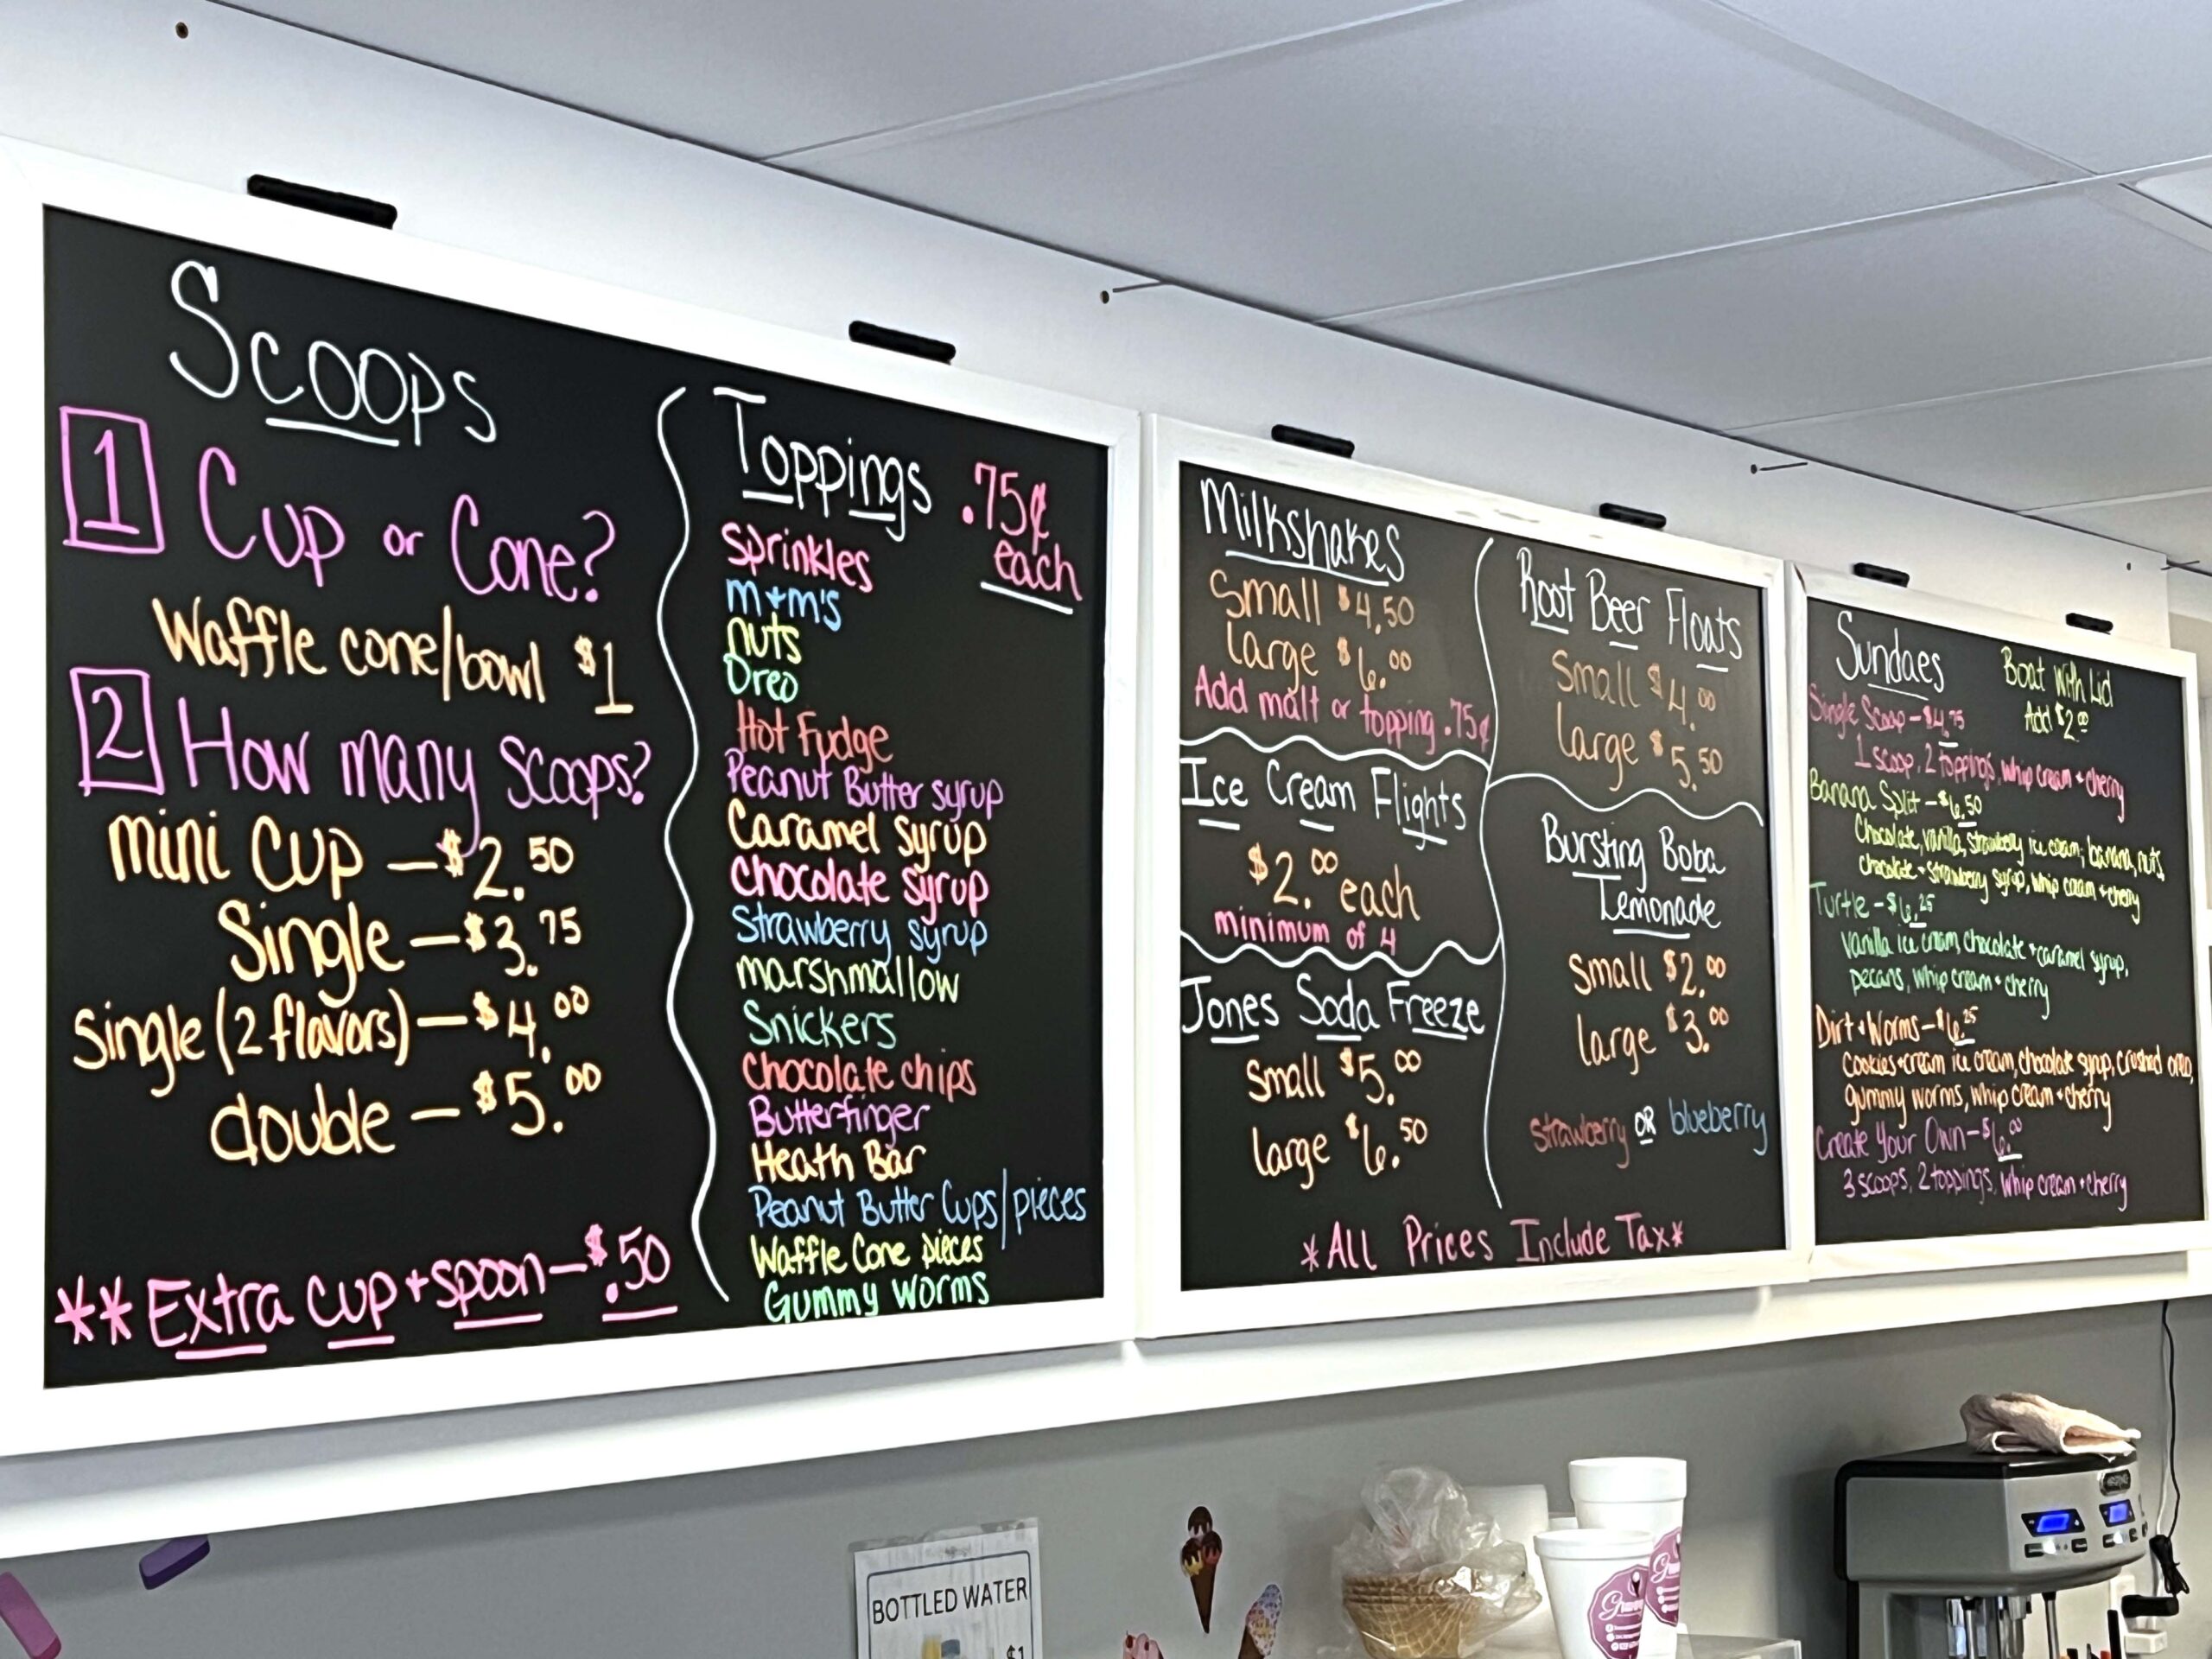 Scoops
1 Cup or Cone?
Waffle cone/bowl $1
2 How many scoops?
mini cup — $2.50
Single — $3.75
Single (2 flavors) — $4.00
double — $5.00
**Extra cup + spoon — $.50
Toppings .75¢
each
sprinkles
m+m's
nuts
Oreo
Hot Fudge
Peanut Butter syrup
Caramel syrup
Chocolate syrup
Strawberry syrup
marshmallow
Snickers
Chocolate chips
Butterfinger
Heath Bar
Peanut Butter Cups/pieces
Waffle Cone pieces
Gummy worms
Milkshakes
Small $4.50
large $6.00
Add malt or topping .75¢
Ice Cream Flights
$2.00 each
minimum of 4
Jones Soda Freeze
Small $5.00
large $6.50
Root Beer Floats
Small $4.00
large $5.50
Bursting Boba
Lemonade
Small $2.00
large $3.00
strawberry OR blueberry
*All Prices Include Tax*
Sundaes
Boat With Lid
Add $2.00
Single Scoop — $4.75
1 scoop, 2 toppings, whip cream + cherry
Banana Split — $6.50
Chocolate, vanilla, strawberry ice cream, banana, nuts,
chocolate + strawberry syrup, whip cream + cherry
Turtle — $6.25
Vanilla ice cream, chocolate + caramel syrup,
pecans, whip cream + cherry
Dirt + Worms — $6.25
Cookies + cream ice cream, chocolate syrup, crushed oreo,
gummy worms, whip cream + cherry
Create Your Own — $6.00
3 scoops, 2 toppings, whip cream + cherry
BOTTLED WATER
$1